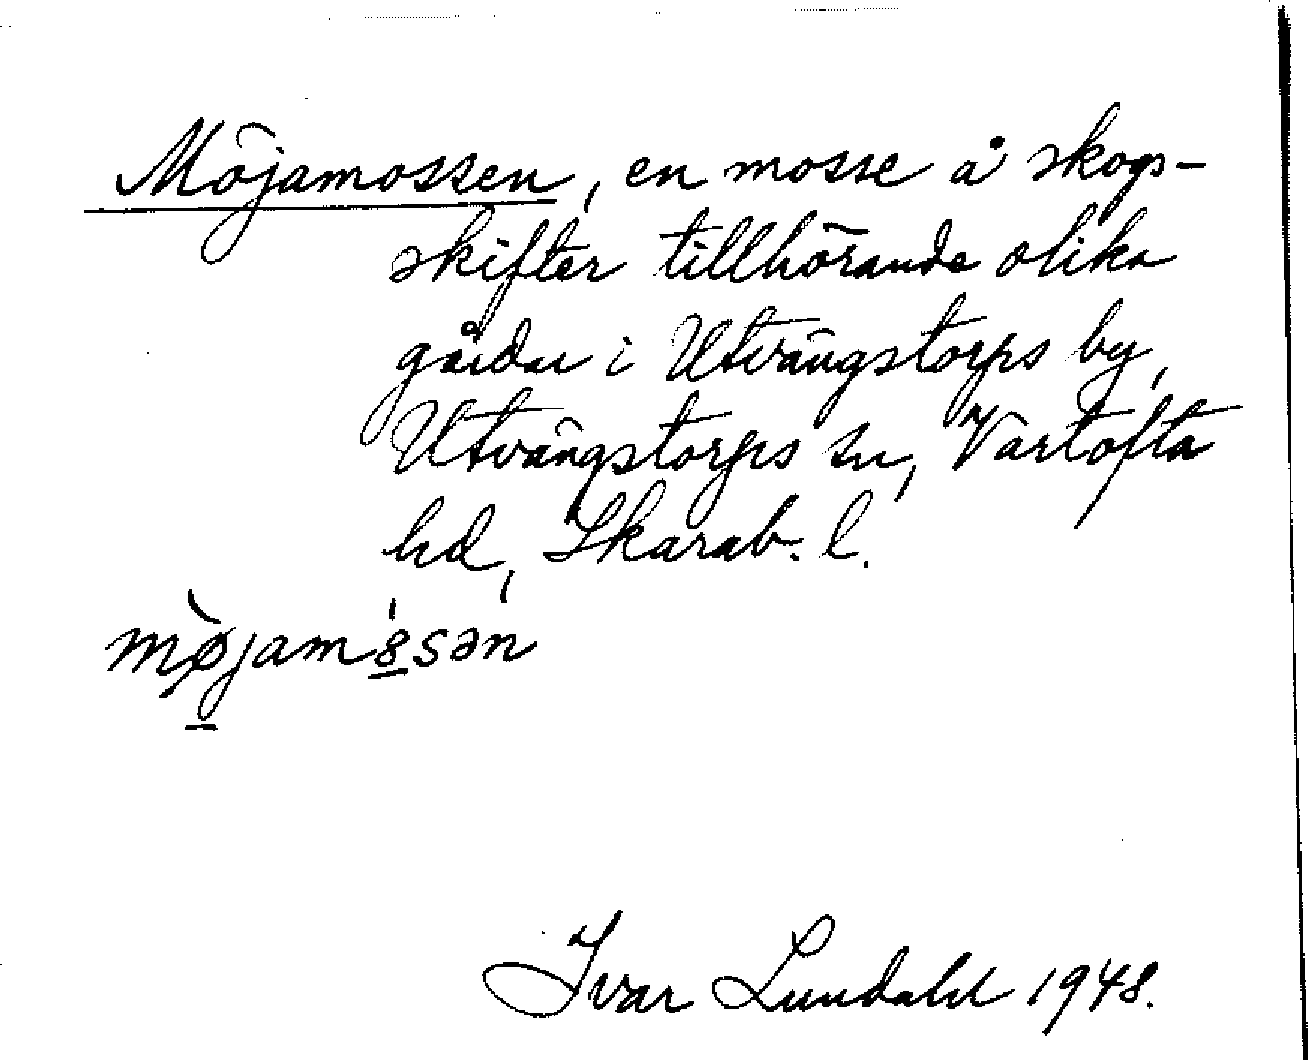 Möjamossen, en mosse å skogs-
skifter tillhörande olika
gårdar i Utvängstorps by,
Utvängstorps sn, Vartofta
hd, Skarab. l.
mø̀jamˈ8sən
Ivar Lundahl 1948.